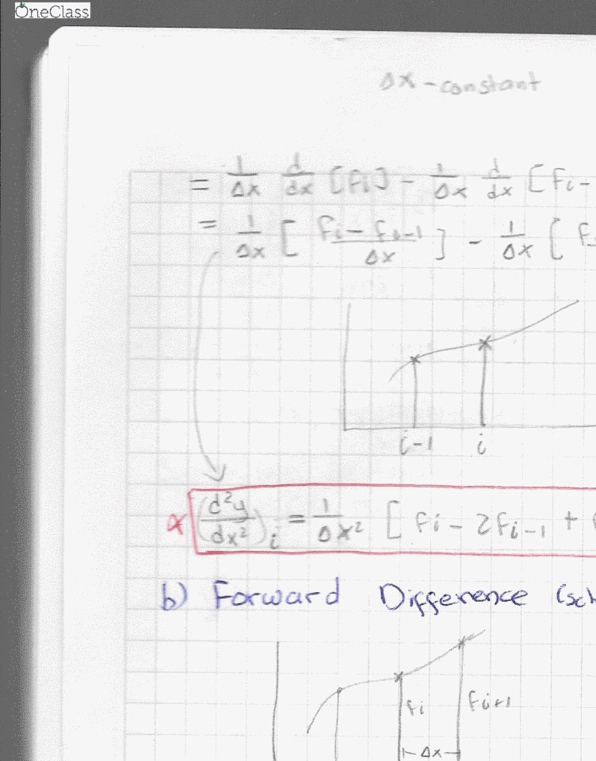 OneClass
Δx - constant
= 1/Δx d/dx [fi] - 1/Δx d/dx [fi-
= 1/Δx [ fi - fi-1 / Δx ] - 1/Δx [ f
i-1 i
* (d²y/dx²)i = 1/Δx² [ fi - 2fi-1 + f
b) Forward Difference (sch
fi fi+1
Δx